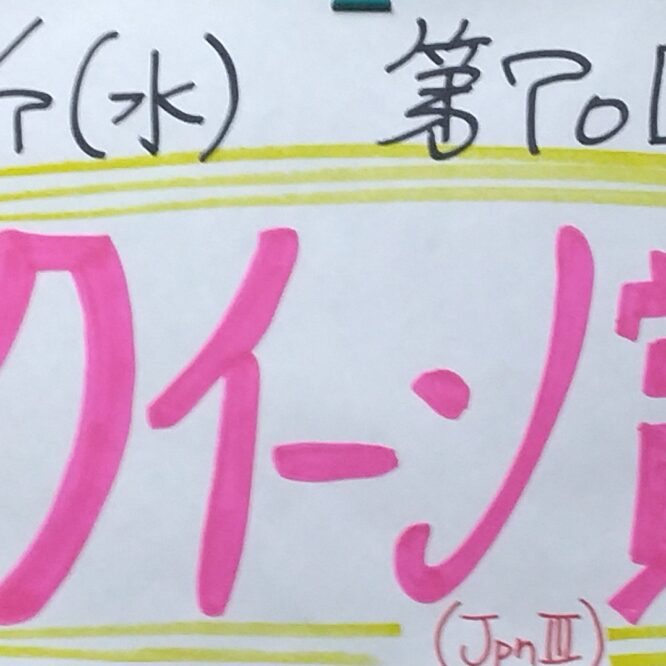 (水) 第70
クイーン賞
(JpnIII)